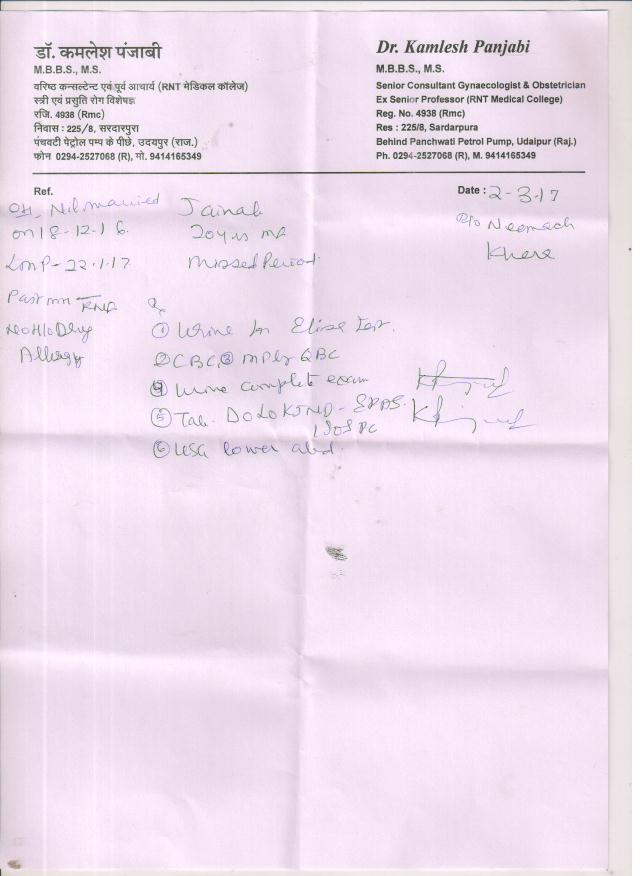 डॉ. कमलेश पंजाबी
M.B.B.S., M.S.
वरिष्ठ कन्सल्टेन्ट एवं पूर्व आचार्य (RNT मेडिकल कॉलेज)
स्त्री एवं प्रसुति रोग विशेषज्ञ
रजि. 4938 (Rmc)
निवास : 225/8, सरदारपुरा
पंचवटी पेट्रोल पम्प के पीछे, उदयपुर (राज.)
फोन 0294-2527068 (R), मो. 9414165349
Dr. Kamlesh Panjabi
M.B.B.S., M.S.
Senior Consultant Gynaecologist & Obstetrician
Ex Senior Professor (RNT Medical College)
Reg. No. 4938 (Rmc)
Res : 225/8, Sardarpura
Behind Panchwati Petrol Pump, Udaipur (Raj.)
Ph. 0294-2527068 (R), M. 9414165349
Ref.
Date : 2-3-17
OH. Nil married
on 18-12-16.
LMP-22.1.17
Past mn
No H/o Drug
Allergy
Jainab
20yrs
Missed Period.
R/o Neemach
Khera
① Urine Elisa Test.
② CBC, ③ MP by QBC
④ Urine complete exam
⑤ Tab. DOLOKIND-
⑥ USG lower abd.